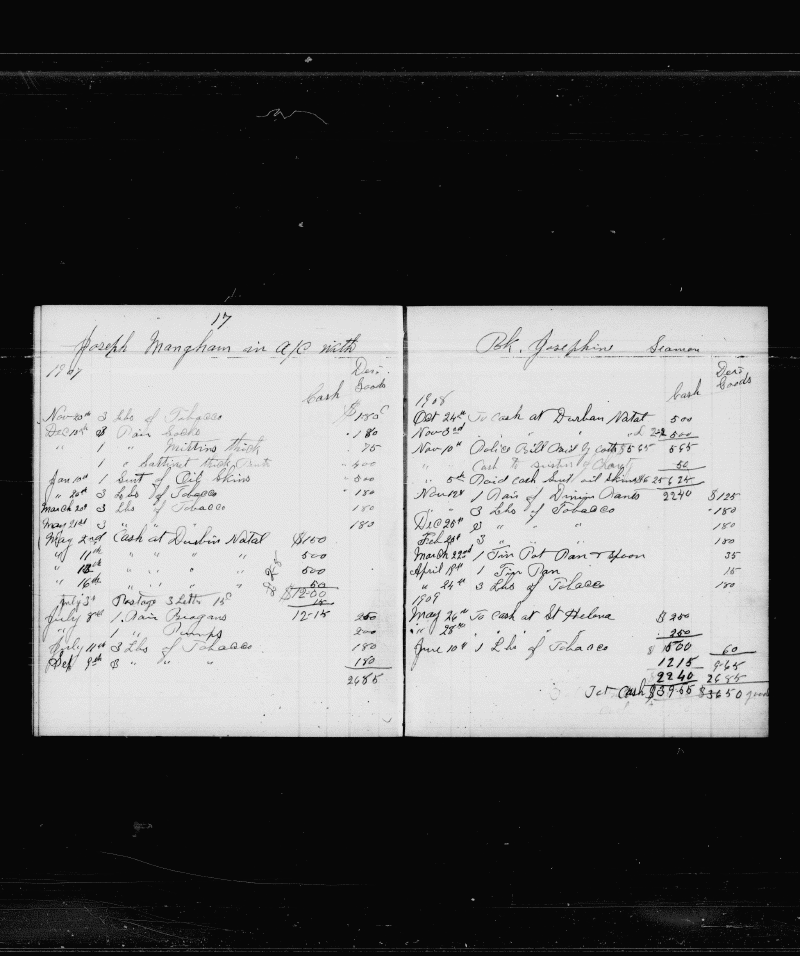 17
Joseph Mangham in a/c with
1907
Deri.
Cash Goods
Nov 20th 3 Lbs of Tobacco $180c
Dec 10th 3 Pair Socks " 180
" 1 " Mittins thick " 75
1 " thick " 400
Jan 10th 1 Suit of Oil Skins " 500
" 20th 3 Lbs of Tobacco " 180
March 20th 3 Lbs of Tobacco 180
May 21st 3 " " " 180
May 2nd Cash at Durbin Natal $150
" 11th " " " " 500
" 13th " " " " 500
" 16th " " " " 50
$1200
July 3d Postage 3 Letters 15c 15
July 8th 1 Pair Brogans 12-15 250
" 1 " Pumps 200
July 11th 3 Lbs of Tobacco 180
Sep 9th 3 " " " 180
2685
Bk. Josephine Seaman
Deri
Cash Goods
1908
Oct 24th To Cash at Durban Natal 500
Nov 3rd " 500
Nov 10th Police Bill Paid by cash $565 565
" Cash 50
" 5th Paid cash suit oil skins $625 625
Nov 12th 1 Pair of Denim Pants 2240 $125
" 3 Lbs of Tobacco " 180
Dec 25th 3 " " " 180
Feb 28th 3 " " " 180
March 22nd 1 Tin Pot Pan & Spoon 35
April 18th 1 Tin Pan 15
" 24th 3 Lbs of Tobacco 180
1909
May 26th To Cash at St Helena $250
" 28th " 250
June 10th 1 Lbs of Tobacco $500 60
1215 9-65
2240 2685
Tot Cash $3955 $3650 goods